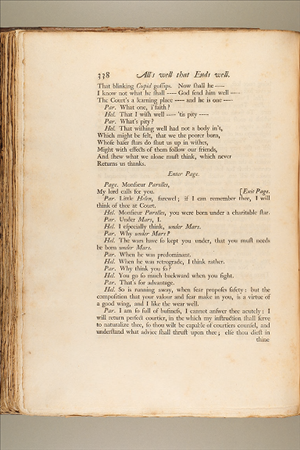 338 All's well that Ends well.
That blinking Cupid gossips. Now shall he —
I know not what he shall — God send him well —
The Court's a learning place — and he is one —
Par. What one, i'faith?
Hel. That I wish well — 'tis pity —
Par. What's pity?
Hel. That wishing well had not a body in't,
Which might be felt, that we the poorer born,
Whose baser stars do shut us up in wishes,
Might with effects of them follow our friends,
And shew what we alone must think, which never
Returns us thanks.
Enter Page.
Page. Monsieur Parolles,
My lord calls for you. [Exit Page.
Par. Little Helen, farewel; if I can remember thee, I will
think of thee at Court.
Hel. Monsieur Parolles, you were born under a charitable star.
Par. Under Mars, I.
Hel. I especially think, under Mars.
Par. Why under Mars?
Hel. The wars have so kept you under, that you must needs
be born under Mars.
Par. When he was predominant.
Hel. When he was retrograde, I think rather.
Par. Why think you so?
Hel. You go so much backward when you fight.
Par. That's for advantage.
Hel. So is running away, when fear proposes safety: but the
composition that your valour and fear make in you, is a virtue of
a good wing, and I like the wear well.
Par. I am so full of business, I cannot answer thee acutely: I
will return perfect courtier, in the which my instruction shall serve
to naturalize thee, so thou wilt be capable of courtiers counsel, and
understand what advice shall thrust upon thee; else thou diest in
thine